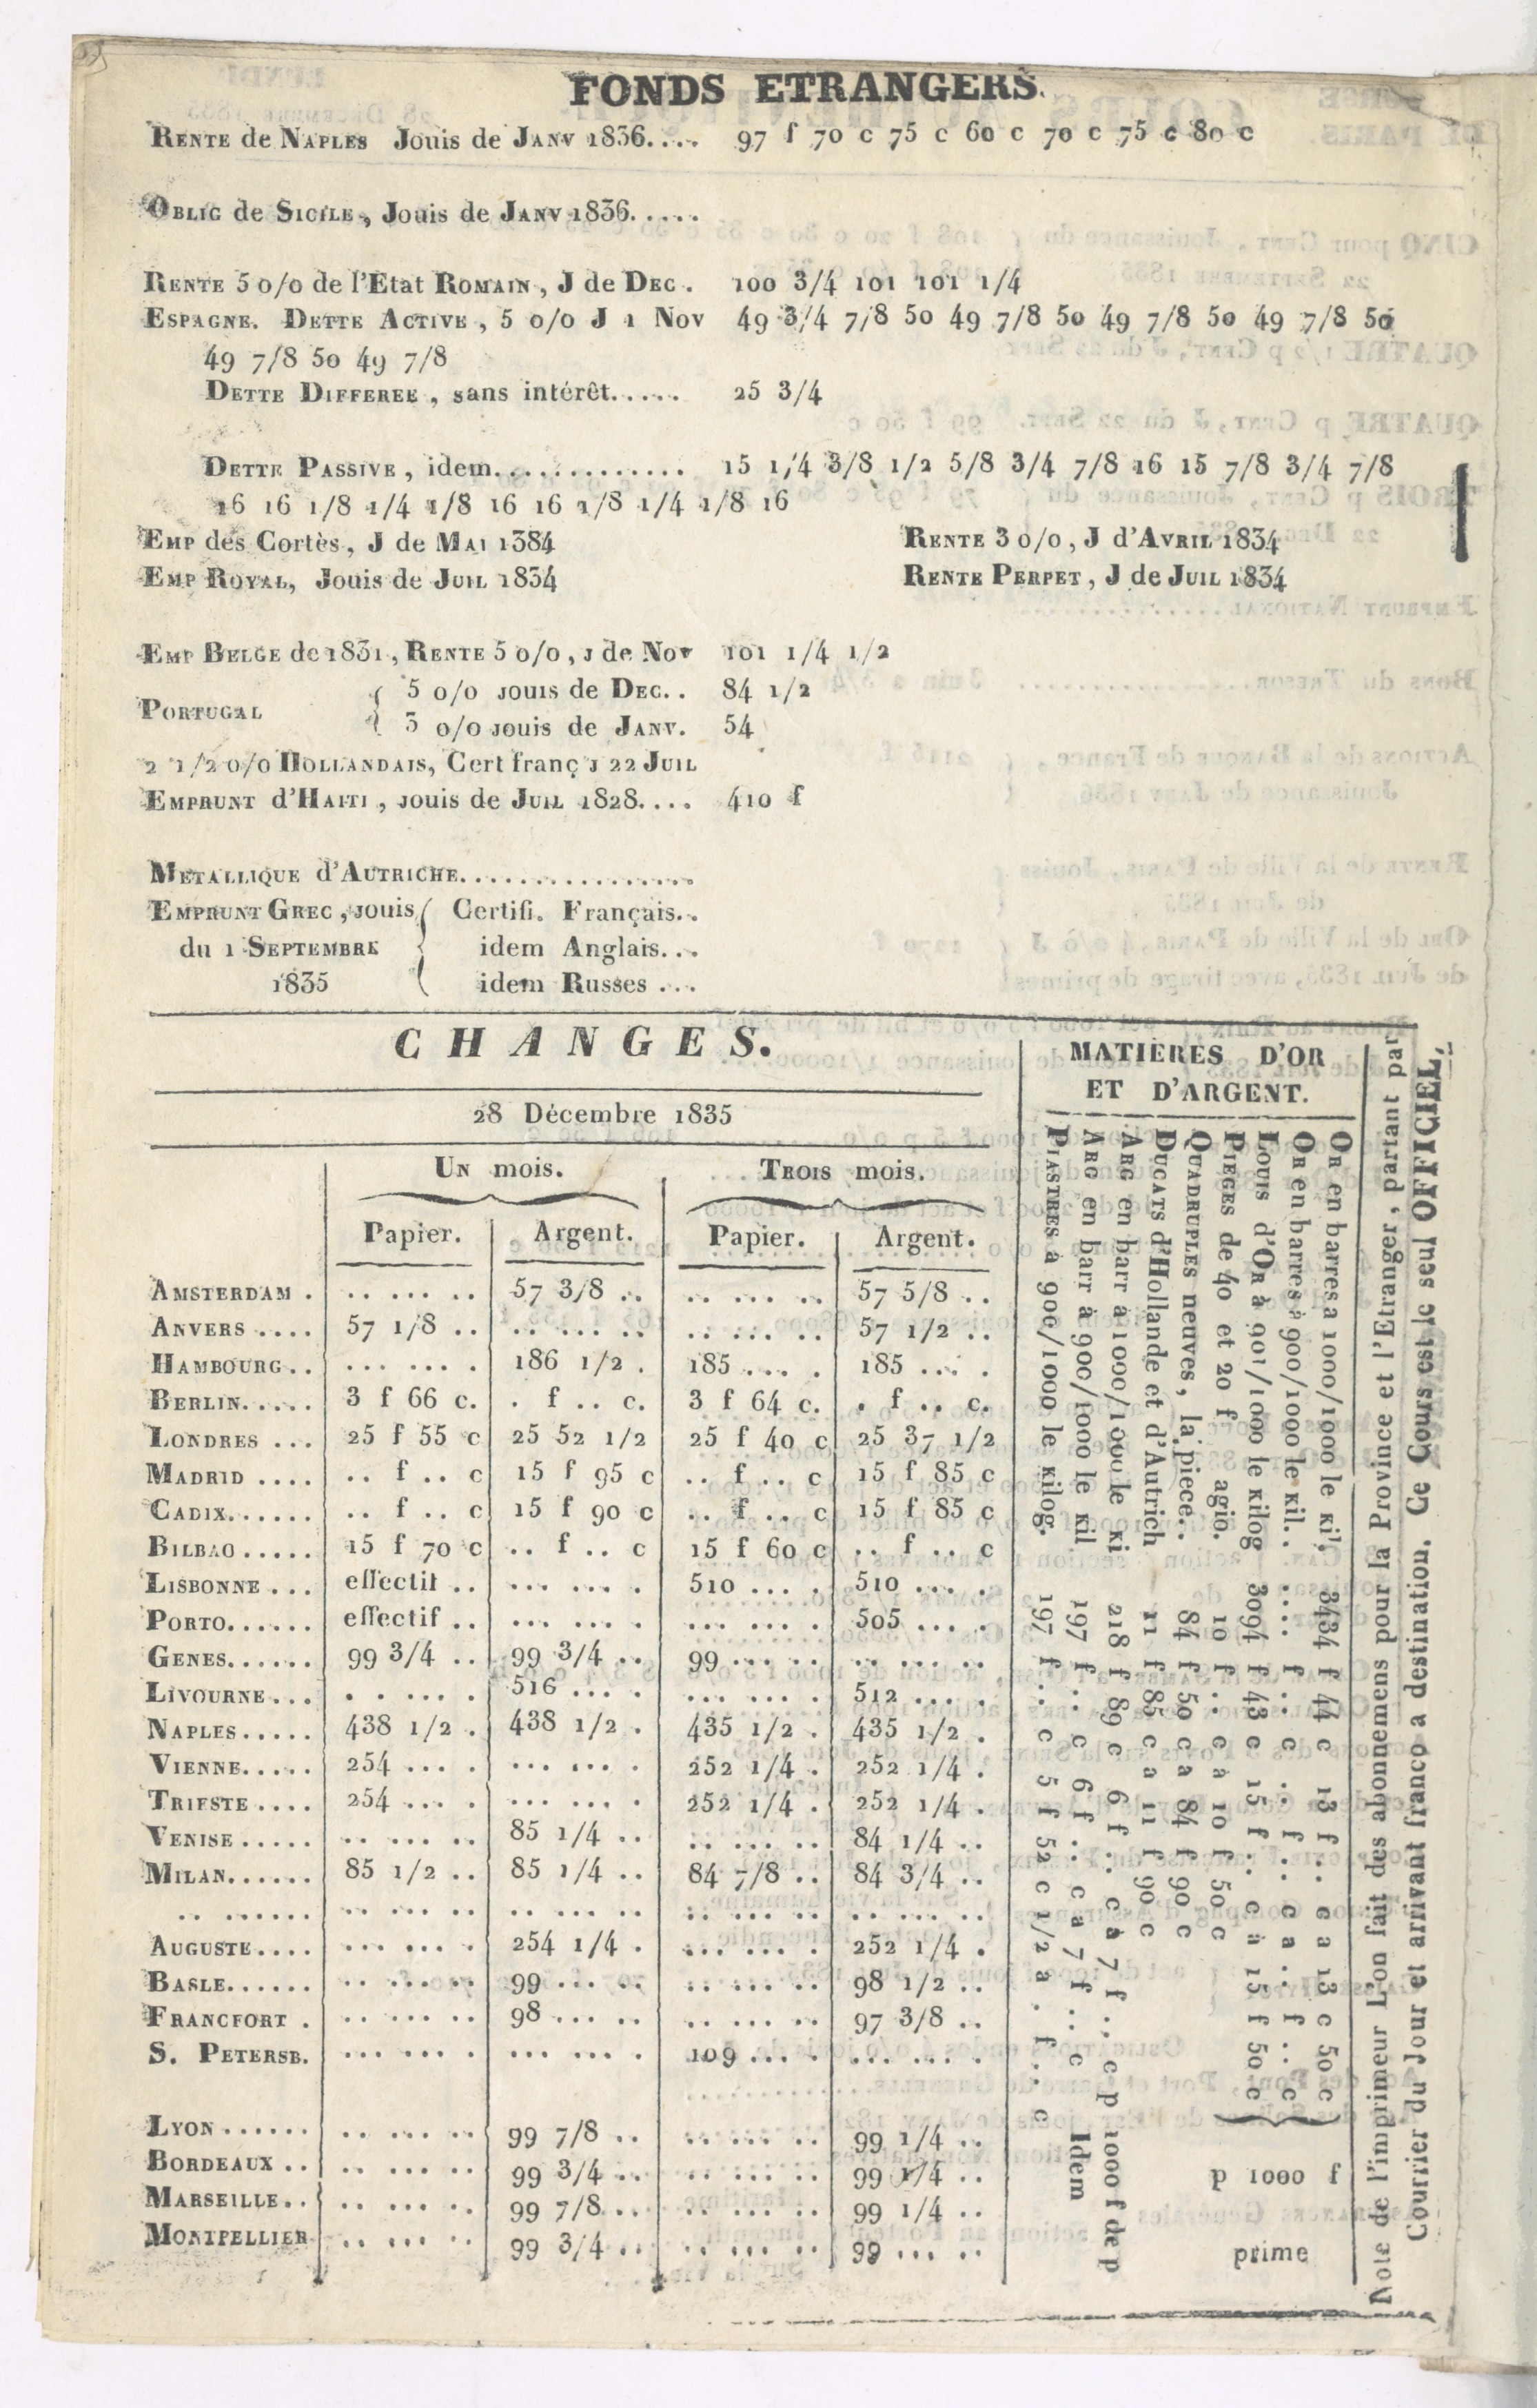 FONDS ETRANGERS.
RENTE de NAPLES Jouis de JANV 1836.... 97 f 70 c 75 c 60 c 70 c 75 c 80 c
OBLIG de SICILE, Jouis de JANV 1836.....
RENTE 5 o/o de l'Etat ROMAIN, J de DEC. 100 3/4 101 101 1/4
ESPAGNE. DETTE ACTIVE, 5 o/o J 1 Nov 49 3/4 7/8 50 49 7/8 50 49 7/8 50 49 7/8 50
49 7/8 50 49 7/8
DETTE DIFFEREE, sans intérêt..... 25 3/4
DETTE PASSIVE, idem............. 15 1/4 3/8 1/2 5/8 3/4 7/8 16 15 7/8 3/4 7/8
16 16 1/8 1/4 1/8 16 16 1/8 1/4 1/8 16
EMP des Cortès, J de MAI 1384 RENTE 3 o/o, J d'AVRIL 1834
EMP ROYAL, Jouis de JUIL 1834 RENTE PERPET, J de JUIL 1834
EMP BELGE de 1831, RENTE 5 o/o, J de Nov 101 1/4 1/2
PORTUGAL { 5 o/o jouis de DEC.. 84 1/2
{ 3 o/o jouis de JANV. 54
2 1/2 o/o HOLLANDAIS, Cert franç J 22 JUIL
EMPRUNT d'HAITI, jouis de JUIL 1828.... 410 f
METALLIQUE d'AUTRICHE................
EMPRUNT GREC, jouis { Certifi. Français..
du 1 SEPTEMBRE { idem Anglais...
1835 { idem Russes ...
CHANGES.
28 Décembre 1835
UN mois. TROIS mois.
Papier. Argent. Papier. Argent.
AMSTERDAM . .. ... .. 57 3/8 .. .. ... .. 57 5/8 ..
ANVERS .... 57 1/8 .. .. ... .. .. ... .. 57 1/2 ..
HAMBOURG.. ... ... . 186 1/2 . 185 ... . 185 ... .
BERLIN..... 3 f 66 c. . f .. c. 3 f 64 c. . f .. c.
LONDRES ... 25 f 55 c 25 52 1/2 25 f 40 c 25 37 1/2
MADRID .... .. f .. c 15 f 95 c .. f .. c 15 f 85 c
CADIX...... .. f .. c 15 f 90 c .. f .. c 15 f 85 c
BILBAO ..... 15 f 70 c .. f .. c 15 f 60 c .. f .. c
LISBONNE ... effectif .. ... ... . 510 ... . 510 ... .
PORTO...... effectif .. ... ... . ... ... . 505 ... .
GENES...... 99 3/4 .. 99 3/4 .. 99 ... .. .. ... ..
LIVOURNE... . . ... . 516 ... . ... ... . 512 ... .
NAPLES..... 438 1/2 . 438 1/2 . 435 1/2 . 435 1/2 .
VIENNE..... 254 ... . ... ... . 252 1/4 . 252 1/4 .
TRIESTE .... 254 ... . ... ... . 252 1/4 . 252 1/4 .
VENISE ..... .. ... .. 85 1/4 .. .. ... .. 84 1/4 ..
MILAN...... 85 1/2 .. 85 1/4 .. 84 7/8 .. 84 3/4 ..
.. ...... .. ... .. .. ... .. .. ... .. .. ... ..
AUGUSTE.... ... ... . 254 1/4 . ... ... . 252 1/4 .
BASLE...... .. ... .. 99 ... .. .. ... .. 98 1/2 ..
FRANCFORT . .. ... .. 98 ... .. .. ... .. 97 3/8 ..
S. PETERSB. ... ... . ... ... . 109 ... . ... ... .
LYON ...... .. ... .. 99 7/8 .. .. ... .. 99 1/4 ..
BORDEAUX .. .. ... .. 99 3/4 .. .. ... .. 99 1/4 ..
MARSEILLE.. .. ... .. 99 7/8 .. .. ... .. 99 1/4 ..
MONTPELLIER .. ... .. 99 3/4 .. .. ... .. 99 ... ..
MATIERES D'OR
ET D'ARGENT.
OR en barres a 1000/1000 le kil. 3434 f 44 c 13 f .. c a 13 c 50 c
OR en barres à 900/1000 le kil. .... f .. c .. f .. c a .. f .. c
LOUIS d'OR à 901/1000 le kilog 3094 f 43 c 15 f .. c à 15 f 50 c
PIECES de 40 et 20 f agio. 10 f .. c à 10 f 50 c
QUADRUPLES neuves, la piece.. 84 f 50 c a 84 f 90 c
DUCATS d'Hollande et d'Autrich 11 f 85 c a 11 f 90 c
ARG en barr à 1000/1000 le ki 218 f 89 c 6 f .. c à 7 f .. c p 1000 f de p
ARG en barr à 900/1000 le kil 197 f .. c 6 f .. c a 7 f .. c Idem
PIASTRES à 900/1000 le kilog. 197 f .. c 5 f 52 c 1/2 a . f .. c
p 1000 f
prime
Note de l'imprimeur L'on fait des abonnemens pour la Province et l'Etranger, partant par
Courrier du Jour et arrivant franco a destination. Ce Cours est le seul OFFICIEL,